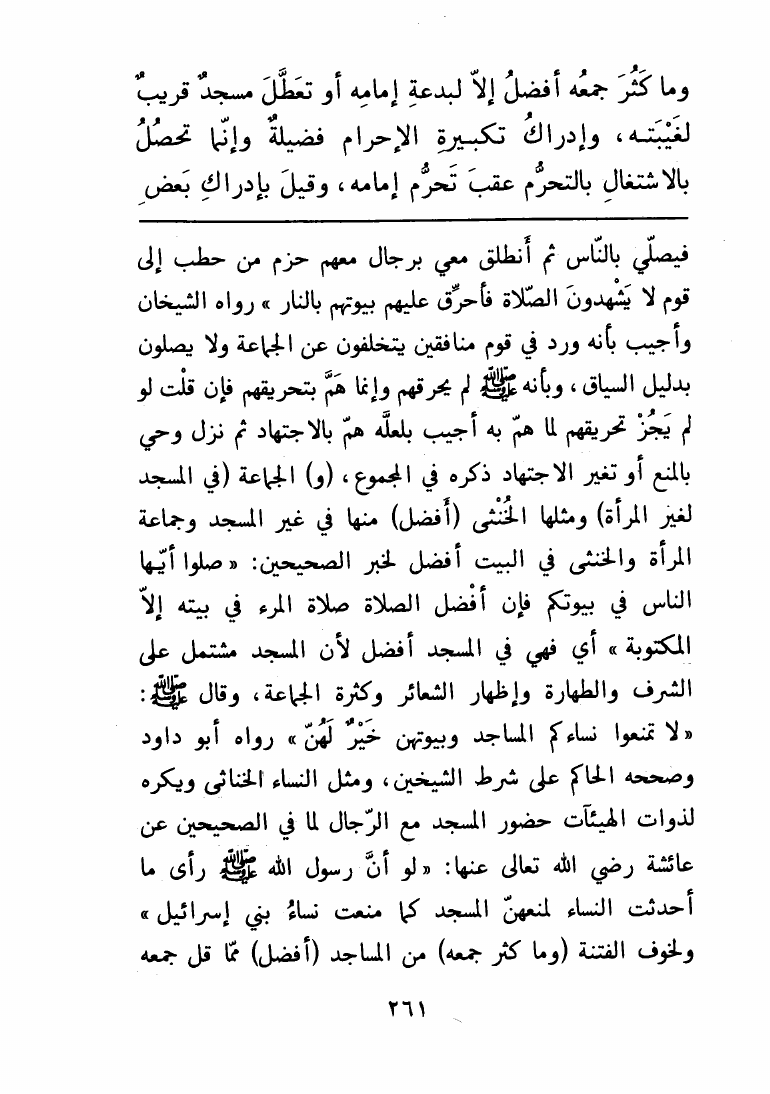 وما كَثُرَ جمعُه أفضلُ إلاّ لبدعةِ إمامِه أو تعَطَّلَ مسجدٌ قريبٌ
لغَيْبَتـه، وإدراكُ تكبـيرةِ الإحرام فضيلةٌ وإنّما تحصُلُ
بالاشتغالِ بالتحرُّم عقبَ تَحرُّم إمامه، وقيلَ بإدراكِ بَعضِ
فيصلّي بالنّاس ثم أَنطلق معي برجال معهم حزم من حطب إلى
قوم لا يَشْهدونَ الصّلاة فأحرِّق عليهم بيوتهم بالنار » رواه الشيخان
وأجيب بأنه ورد في قوم منافقين يتخلفون عن الجماعة ولا يصلون
بدليل السياق، وبأنه ﷺ لم يحرقهم وإنما هَمَّ بتحريقهم فإن قلْت لو
لم يَجُزْ تحريقهم لما همّ به أجيب بلعلَّه همّ بالاجتهاد ثم نزل وحي
بالمنع أو تغير الاجتهاد ذكره في المجموع، (و) الجماعة (في المسجد
لغير المرأة) ومثلها الخُنْثى (أَفضل) منها في غير المسجد وجماعة
المرأة والخنثى في البيت أفضل لخبر الصحيحين: « صلوا أيّـها
الناس في بيوتكم فإن أفْضل الصلاة صلاة المرء في بيته إلاّ
المكتوبة » أي فهي في المسجد أفضل لأن المسجد مشتمل على
الشرف والطهارة وإظهار الشعائر وكثرة الجماعة، وقال ﷺ :
« لا تمنعوا نساءكم المساجد وبيوتهن خَيْرٌ لَهُنّ » رواه أبو داود
وصححه الحاكم على شرط الشيخين، ومثل النساء الخناثى ويكره
لذوات الهيئآت حضور المسجد مع الرّجال لما في الصحيحين عن
عائشة رضي الله تعالى عنها: « لو أنَّ رسول الله ﷺ رأى ما
أحدثت النساء لمنعهنّ المسجد كما منعت نساءُ بني إسرائيل »
ولخوف الفتنة (وما كثر جمعه) من المساجد (أفضل) ممّا قل جمعه
٢٦١